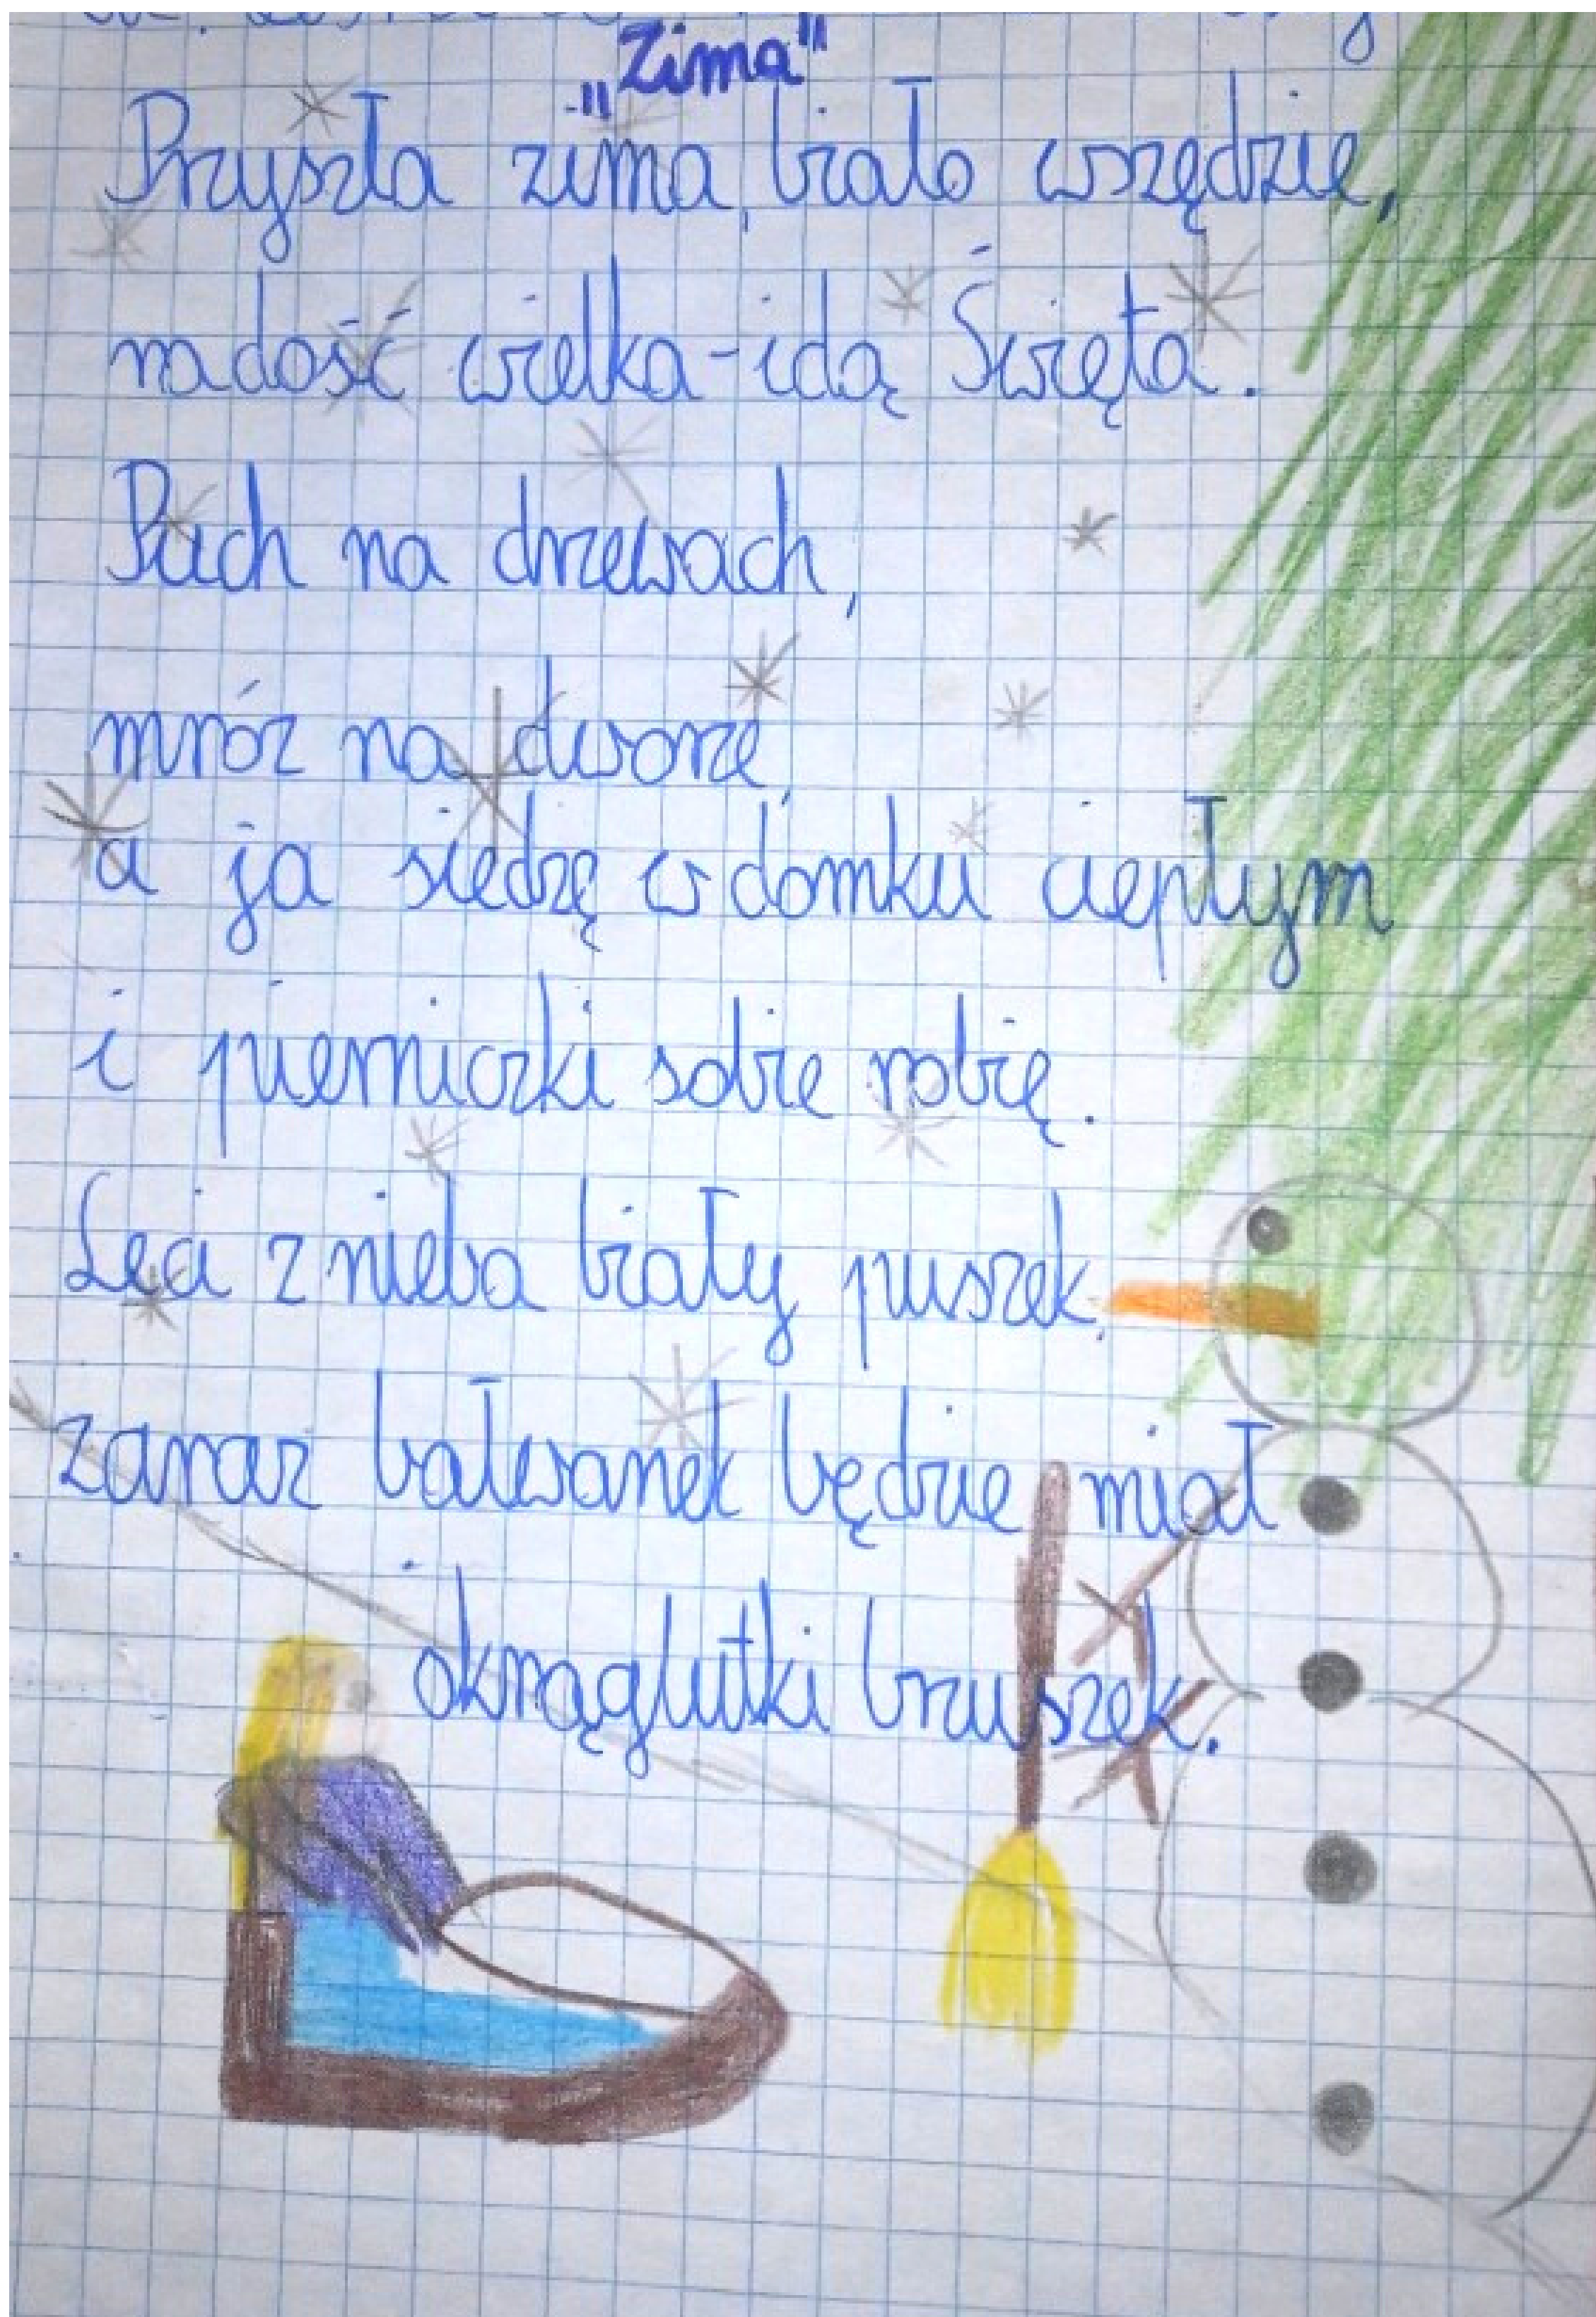 „Zima”
Przyszła zima, biało wszędzie,
radość wielka-idą Święta.
Puch na drzewach,
mróz na dworze,
a ja siedzę w domku ciepłym
i pierniczki sobie robię.
Leci z nieba biały puszek,
zaraz bałwanek będzie miał
okrąglutki brzuszek.